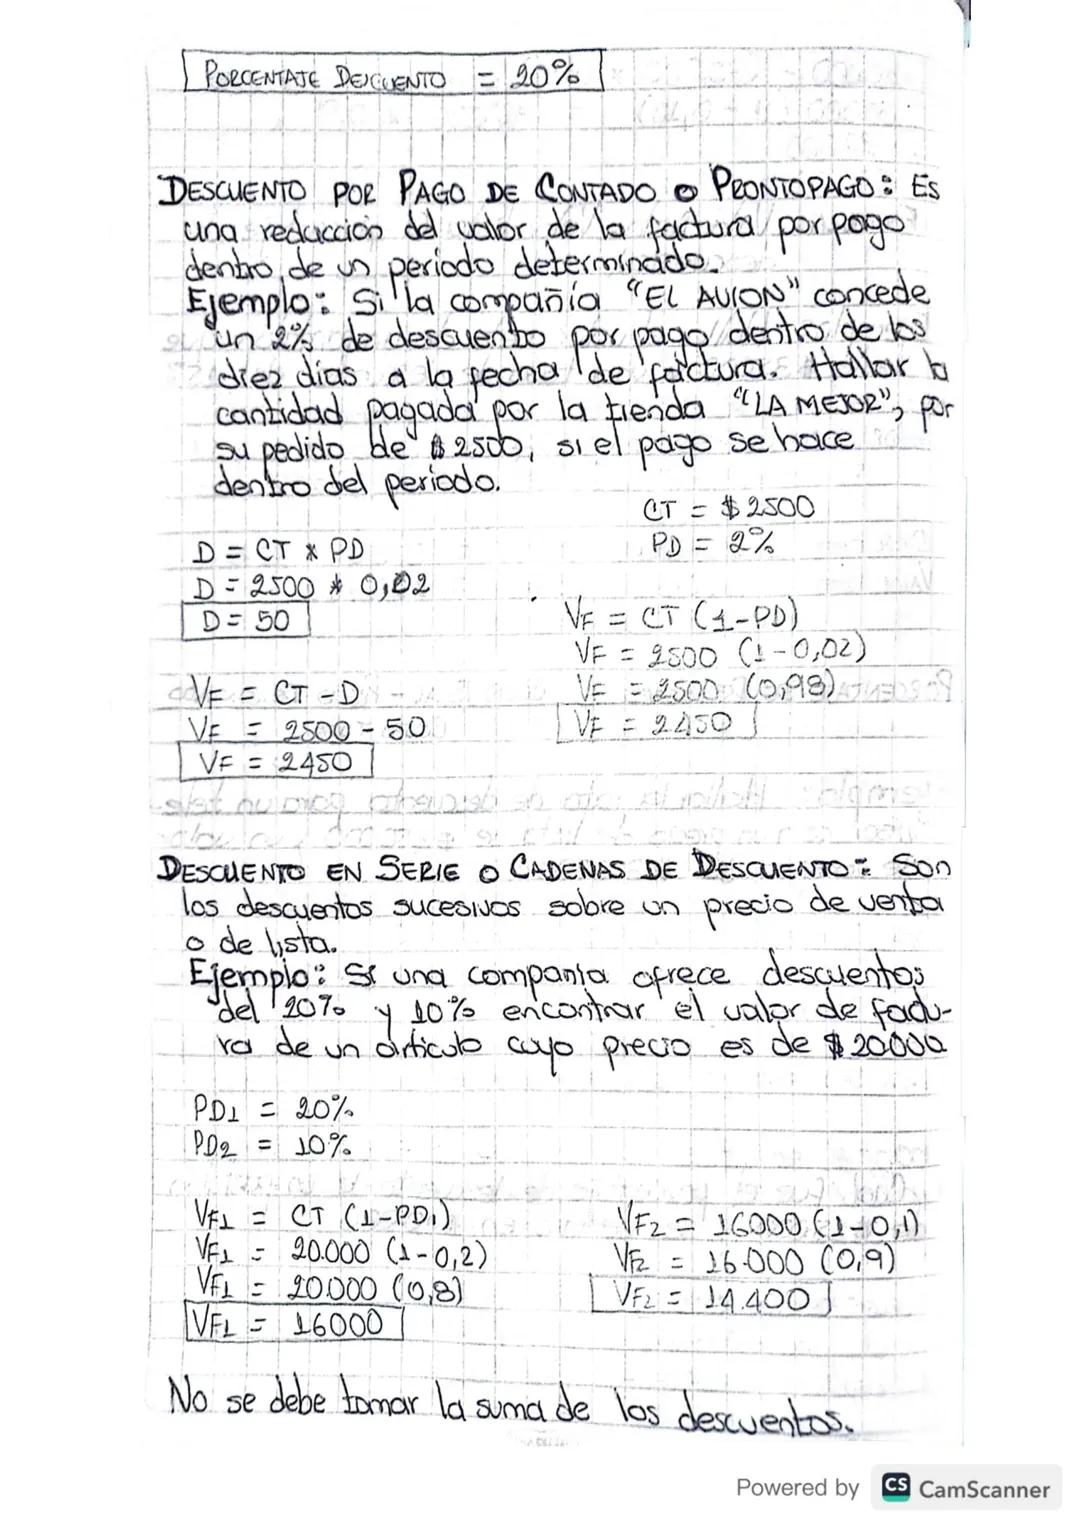 PORCENTAJE DESCUENTO = 20%
DESCUENTO POR PAGO DE CONTADO O PRONTOPAGO: ES
una reducción del valor de la factura por pago
dentro de un periodo determinado.
Ejemplo: Si la compañía "EL AVION" concede
un 2% de descuento por pago dentro de los
diez días a la fecha de factura. Hallar la
cantidad pagada por la tienda "LA MEJOR", por
su pedido de $2500, si el pago se hace
dentro del periodo.
CT = $2500
PD = 2%
D = CT * PD
D = 2500 * 0,02
D = 50
VF = CT - D
VF = 2500 - 50
VF = 2450
VF = CT (1-PD)
VF = 2500 (1-0,02)
VF = 2500 (0,98)
VF = 2450
DESCUENTO EN SERIE O CADENAS DE DESCUENTO: Son
los descuentos sucesivos sobre un precio de venta
o de lista.
Ejemplo: Si una compania ofrece descuentos
del 20% y 10% encontrar el valor de factu-
ra de un articulo cuyo precio es de $20000
PD1 = 20%
PD2 = 10%
VF1 = CT (1-PD1)
VF1 = 20.000 (1-0,2)
VF1 = 20.000 (0,8)
VF1 = 16000
VF2 = 16000 (1-0,1)
VF2 = 16.000 (0,9)
VF2 = 14.400
No se debe tomar la suma de los descuentos.
Powered by CS CamScanner